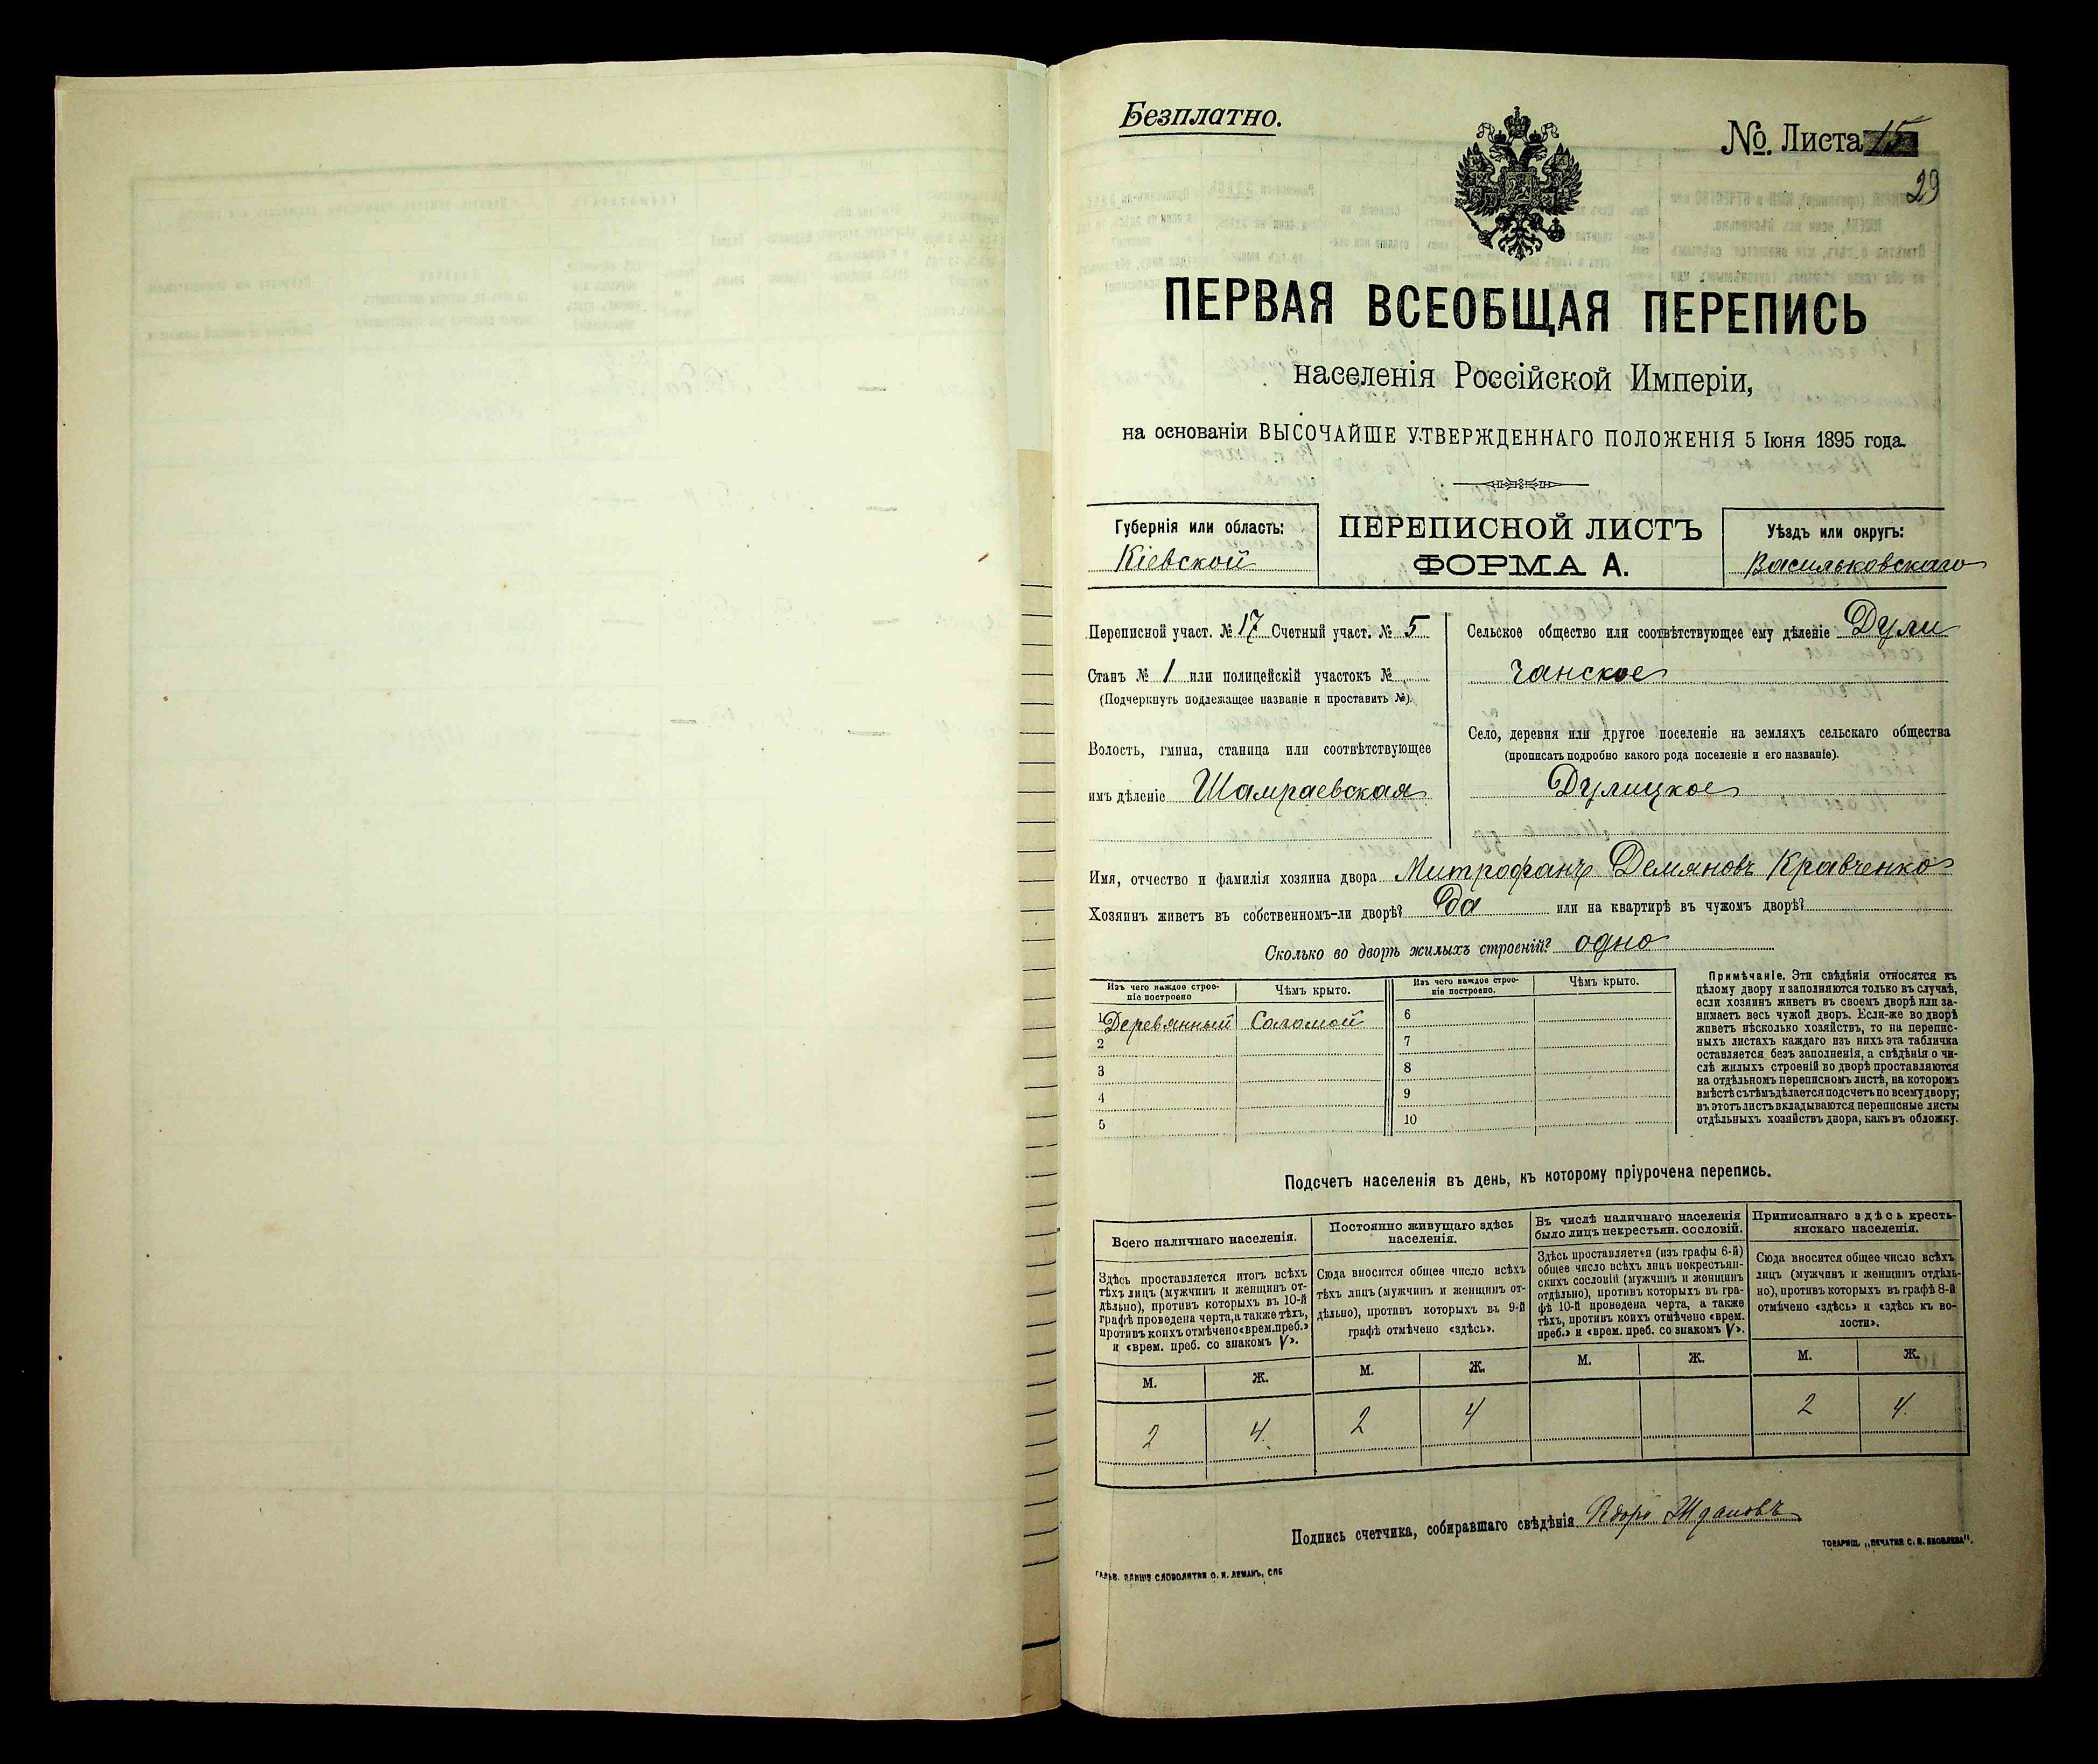 Безплатно.
№. Листа 15
29
ПЕРВАЯ ВСЕОБЩАЯ ПЕРЕПИСЬ
населенія Россійской Имперіи,
на основаніи ВЫСОЧАЙШЕ УТВЕРЖДЕННАГО ПОЛОЖЕНІЯ 5 Іюня 1895 года.
Губернія или область:
Кіевской
ПЕРЕПИСНОЙ ЛИСТЪ
ФОРМА А.
Уѣздъ или округъ:
Васильковскаго
Переписной участ. № 17 Счетный участ. № 5
Станъ № 1 или полицейскій участокъ №
(Подчеркнуть подлежащее названіе и проставить №).
Волость, гмина, станица или соотвѣтствующее
имъ дѣленіе Шамраевская
Сельское общество или соотвѣтствующее ему дѣленіе Дули
чанское
Село, деревня или другое поселеніе на земляхъ сельскаго общества
(прописать подробно какого рода поселеніе и его названіе).
Дулицкое
Имя, отчество и фамилія хозяина двора Митрофанъ Демяновъ Кравченко
Хозяинъ живетъ въ собственномъ-ли дворѣ? да или на квартирѣ въ чужомъ дворѣ?
Сколько во дворѣ жилыхъ строеній? одно
Изъ чего каждое строе-
ніе построено
Чѣмъ крыто.
Изъ чего каждое строе-
ніе построено.
Чѣмъ крыто.
1 Деревянный Соломой 6
2 7
3 8
4 9
5 10
Примѣчаніе. Эти свѣдѣнія относятся къ
цѣлому двору и заполняются только въ случаѣ,
если хозяинъ живетъ въ своемъ дворѣ или за-
нимаетъ весь чужой дворъ. Если-же во дворѣ
живетъ нѣсколько хозяйствъ, то на перепис-
ныхъ листахъ каждаго изъ нихъ эта табличка
оставляется безъ заполненія, а свѣдѣнія о чи-
слѣ жилыхъ строеній во дворѣ проставляются
на отдѣльномъ переписномъ листѣ, на которомъ
вмѣстѣ съ тѣмъ дѣлается подсчетъ по всему двору;
въ этотъ листъ вкладываются переписные листы
отдѣльныхъ хозяйствъ двора, какъ въ обложку.
Подсчетъ населенія въ день, къ которому пріурочена перепись.
Всего наличнаго населенія.
Здѣсь проставляется итогъ всѣхъ
тѣхъ лицъ (мужчинъ и женщинъ от-
дѣльно), противъ которыхъ въ 10-й
графѣ проведена черта, а также тѣхъ,
противъ коихъ отмѣчено «врем. преб.»
и «врем. преб. со знакомъ V».
Постоянно живущаго здѣсь
населенія.
Сюда вносится общее число всѣхъ
тѣхъ лицъ (мужчинъ и женщинъ от-
дѣльно), противъ которыхъ въ 9-й
графѣ отмѣчено «здѣсь».
Въ числѣ наличнаго населенія
было лицъ некрестьян. сословій.
Здѣсь проставляется (изъ графы 6-й)
общее число всѣхъ лицъ некрестьян-
скихъ сословій (мужчинъ и женщинъ
отдѣльно), противъ которыхъ въ гра-
фѣ 10-й проведена черта, а также
тѣхъ, противъ коихъ отмѣчено «врем.
преб.» и «врем. преб. со знакомъ V».
Приписаннаго здѣсь кресть-
янскаго населенія.
Сюда вносится общее число всѣхъ
лицъ (мужчинъ и женщинъ отдѣль-
но), противъ которыхъ въ графѣ 8-й
отмѣчено «здѣсь» и «здѣсь къ во-
лости».
М. Ж. М. Ж. М. Ж. М. Ж.
2 4. 2 4 2 4.
Подпись счетчика, собиравшаго свѣдѣнія Ждановъ
ТОВАРИЩ. „ПЕЧАТНЯ С. П. ЯКОВЛЕВА".
СЛОВОЛИТНИ О. И. ЛЕМАНЪ, СПБ